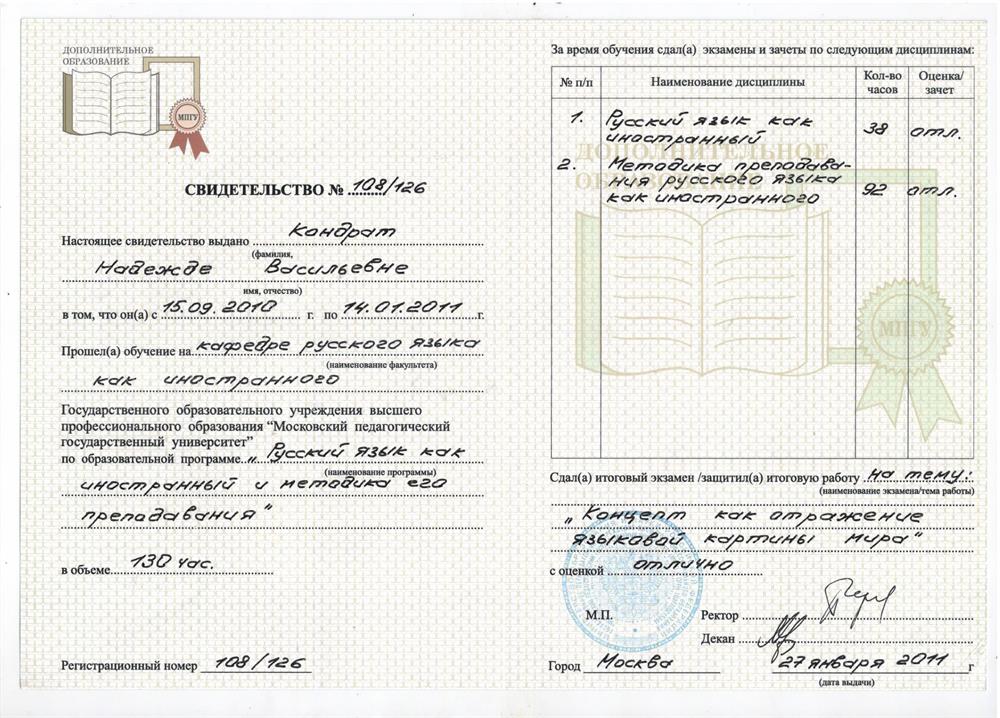 ДОПОЛНИТЕЛЬНОЕ
ОБРАЗОВАНИЕ
МПГУ
СВИДЕТЕЛЬСТВО № 108/126
Настоящее свидетельство выдано Кондрат
(фамилия,
Надежде Васильевне
имя, отчество)
в том, что он(а) с 15.09.2010 г. по 14.01.2011 г.
Прошел(а) обучение на кафедре русского языка
(наименование факультета)
как иностранного
Государственного образовательного учреждения высшего
профессионального образования “Московский педагогический
государственный университет”
по образовательной программе „ Русский язык как
(наименование программы)
иностранный и методика его
преподавания"
в объеме 130 час.
Регистрационный номер 108/126
За время обучения сдал(а) экзамены и зачеты по следующим дисциплинам:
№ п/п Наименование дисциплины Кол-во часов Оценка/зачет
1. Русский язык как
иностранный 38 отл.
ДОПОЛНИТЕЛЬНОЕ
ОБРАЗОВАНИЕ
2. Методика преподава-
ния русского языка
как иностранного 92 отл.
МПГУ
Сдал(а) итоговый экзамен /защитил(а) итоговую работу на тему:
(наименование экзамена/тема работы)
„Концепт как отражение
языковой картины мира"
с оценкой отлично
М.П.
Ректор
Декан
Город Москва 27 января 2011 г
(дата выдачи)